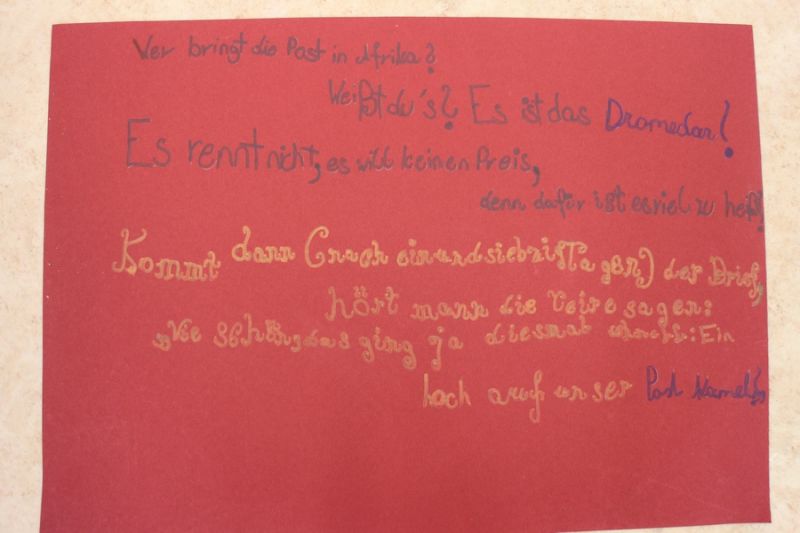 Wer bringt die Post in Afrika?
Weißt du's? Es ist das Dromedar!
Es rennt nicht, es will keinen Preis,
denn dafür ist es viel zu heiß!
Kommt dann (nach einundsiebzig Tagen) der Brief,
hört mann die sagen:
„Wie schön, das ging ja diesmal schnell: Ein
hoch auf unser Post Kamel!"